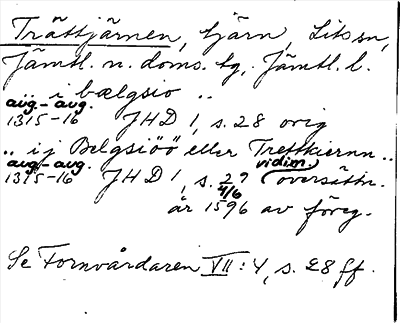 Trättjärnen, tjärn, Lits sn,
Jämtl. n. doms. tg, Jämtl. l.
.. i bælgsio ..
aug.-aug.
1315-16 JHD 1, s. 28 orig
.. ij Belgsiöö eller Trettkiernn ..
aug.-aug.
1315-16 JHD 1, s. 29 (vidim.) översättn.
4/6
år 1596 av föreg.
Se Fornvårdaren VII:4, s. 28 ff.